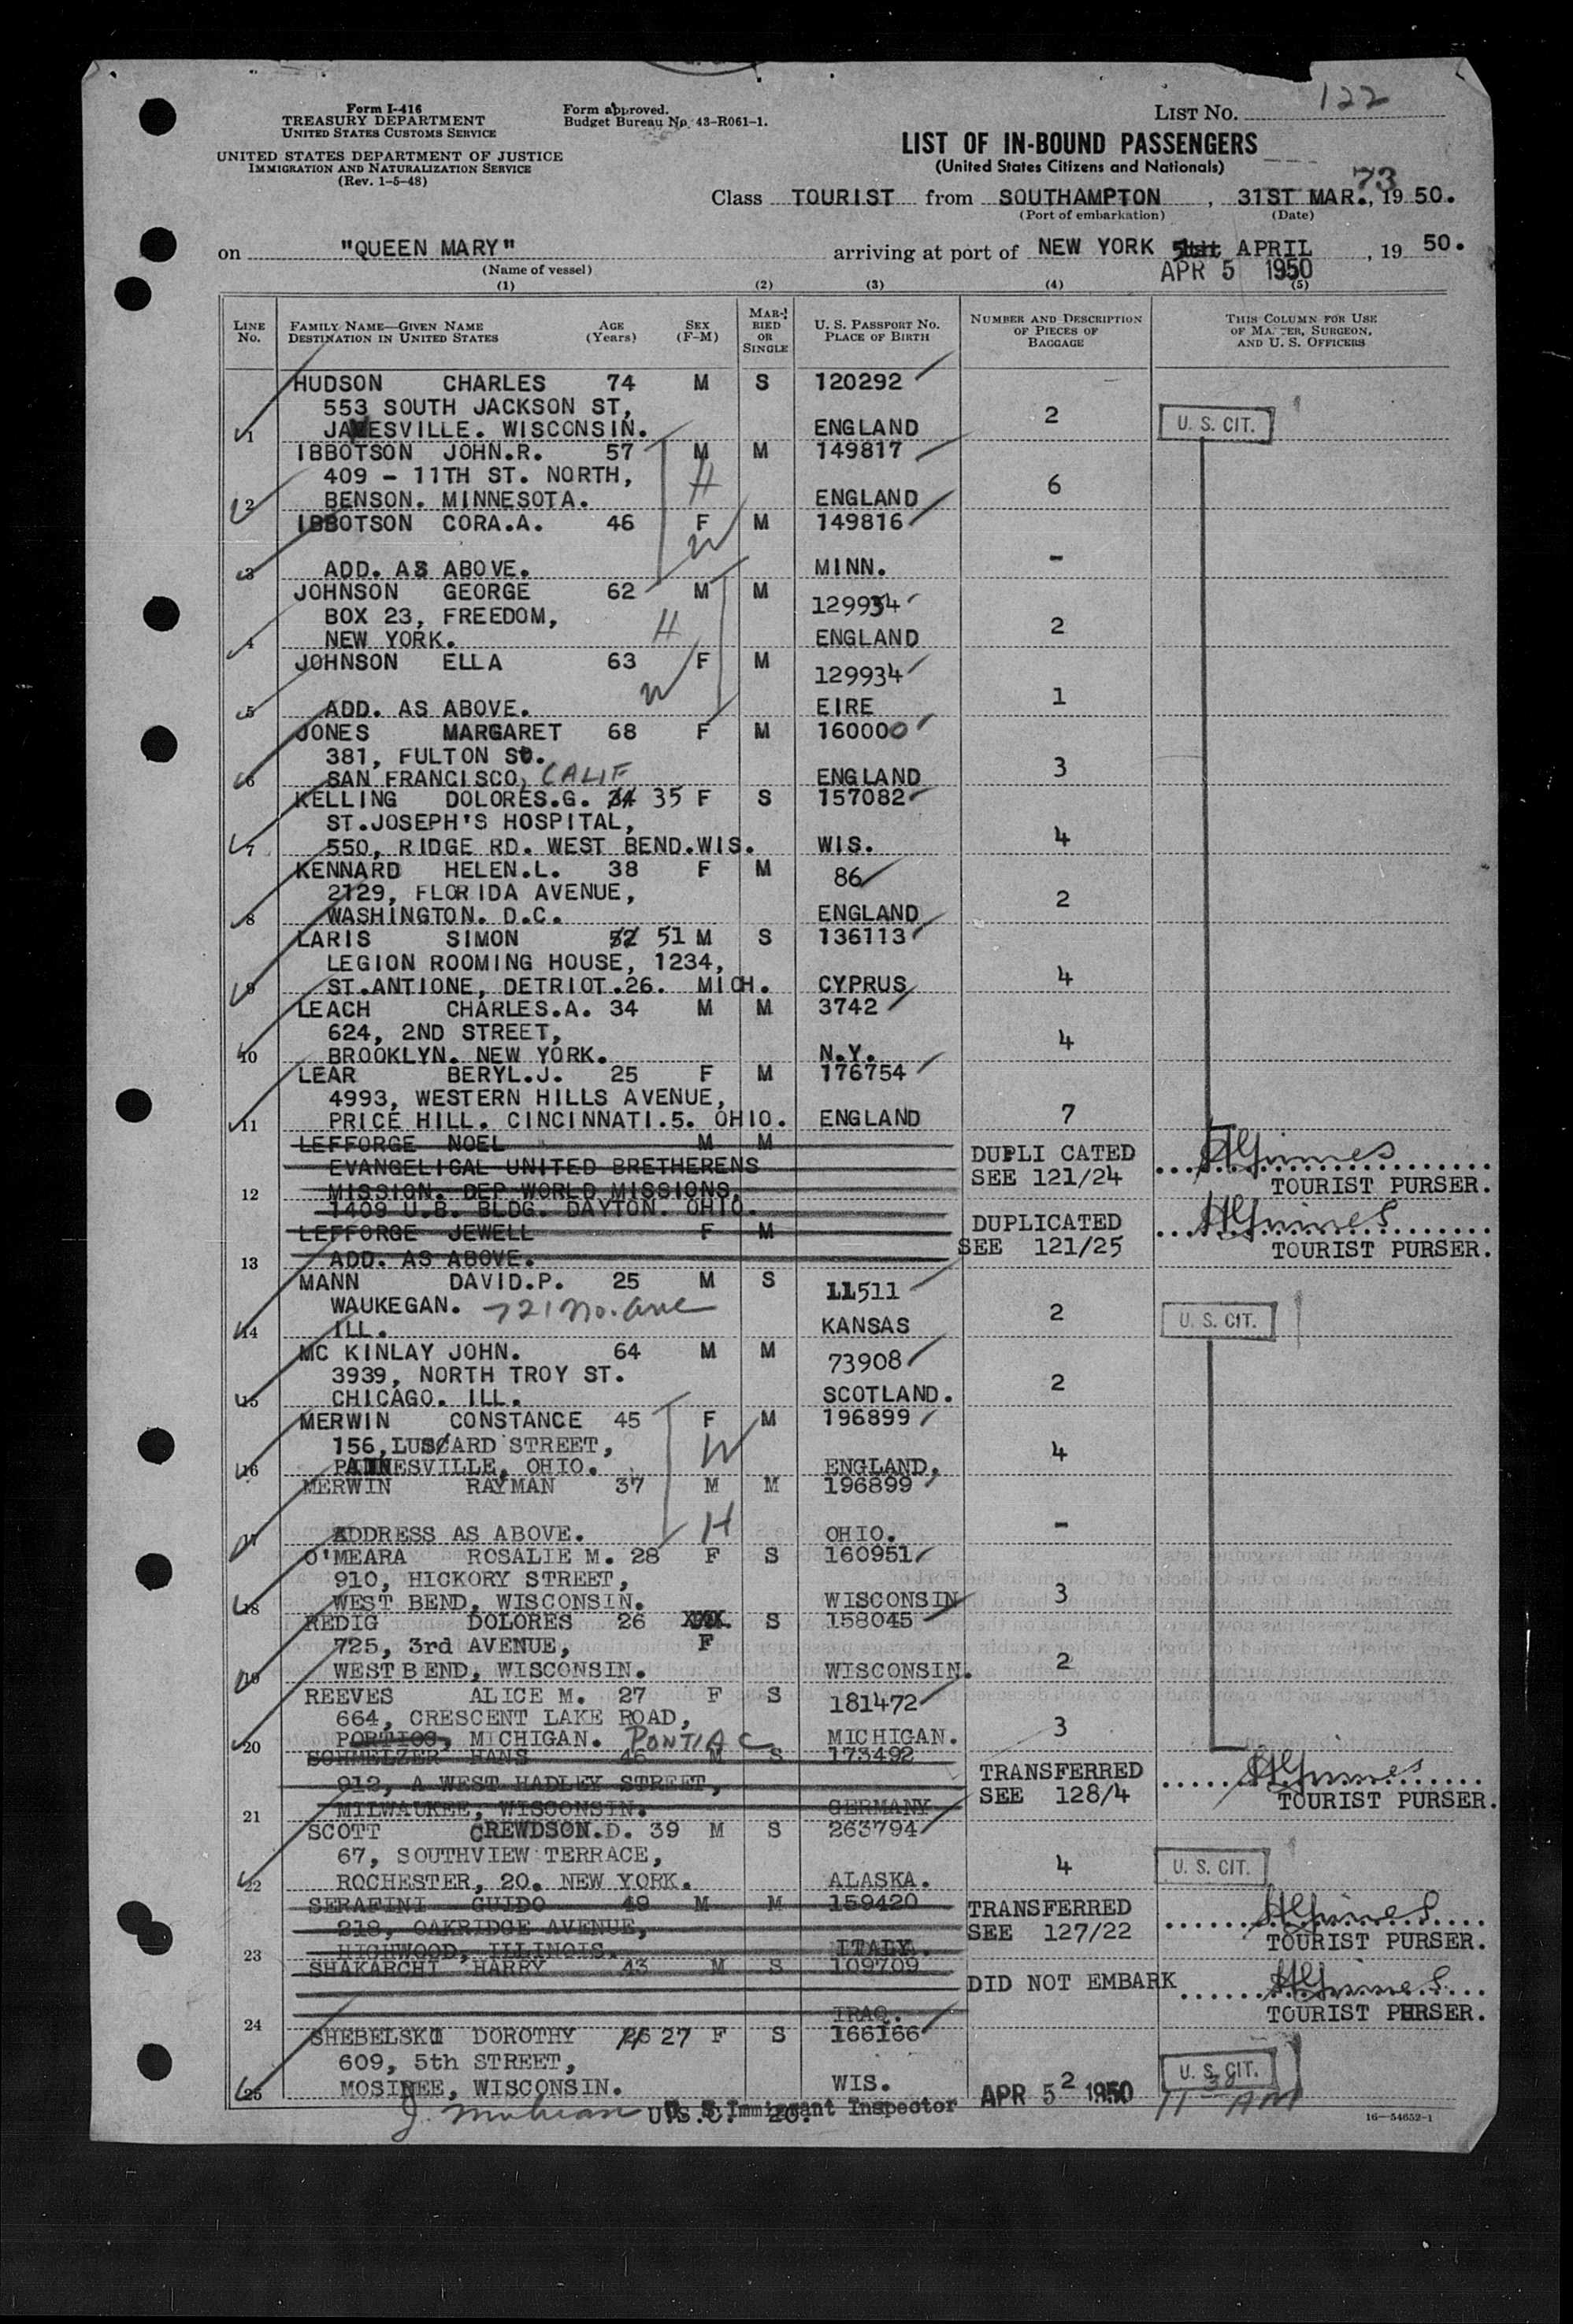 Form I-416
TREASURY DEPARTMENT
UNITED STATES CUSTOMS SERVICE
UNITED STATES DEPARTMENT OF JUSTICE
IMMIGRATION AND NATURALIZATION SERVICE
(Rev. 1-5-48)
Form approved.
Budget Bureau No. 43-R061-1.
LIST No. 122
LIST OF IN-BOUND PASSENGERS
(United States Citizens and Nationals)
73
Class TOURIST from SOUTHAMPTON, 31ST MAR., 1950.
(Port of embarkation) (Date)
on "QUEEN MARY" arriving at port of NEW YORK APRIL, 1950.
(Name of vessel) APR 5 1950
(1) (2) (3) (4) (5)
LINE No. FAMILY NAME—GIVEN NAME DESTINATION IN UNITED STATES AGE (Years) SEX (F-M) MARRIED OR SINGLE U. S. PASSPORT NO. PLACE OF BIRTH NUMBER AND DESCRIPTION OF PIECES OF BAGGAGE THIS COLUMN FOR USE OF MASTER, SURGEON, AND U. S. OFFICERS
HUDSON CHARLES 74 M S 120292
553 SOUTH JACKSON ST, 2 U. S. CIT.
1 JANESVILLE. WISCONSIN. ENGLAND
IBBOTSON JOHN.R. 57 M M 149817
409 - 11TH ST. NORTH, H 6
2 BENSON. MINNESOTA. ENGLAND
IBBOTSON CORA.A. 46 F M 149816
W -
3 ADD. AS ABOVE. MINN.
JOHNSON GEORGE 62 M M 129934
BOX 23, FREEDOM, H 2
4 NEW YORK. ENGLAND
JOHNSON ELLA 63 F M 129934
W 1
5 ADD. AS ABOVE. EIRE
JONES MARGARET 68 F M 160000
381, FULTON St. 3
6 SAN FRANCISCO, CALIF ENGLAND
KELLING DOLORES.G. 34 35 F S 157082
ST.JOSEPH'S HOSPITAL, 4
7 550, RIDGE RD. WEST BEND.WIS. WIS.
KENNARD HELEN.L. 38 F M 86
2129, FLORIDA AVENUE, 2
8 WASHINGTON. D.C. ENGLAND
LARIS SIMON 52 51 M S 136113
LEGION ROOMING HOUSE, 1234, 4
9 ST.ANTIONE, DETRIOT.26. MICH. CYPRUS
LEACH CHARLES.A. 34 M M 3742
624, 2ND STREET, 4
10 BROOKLYN. NEW YORK. N.Y.
LEAR BERYL.J. 25 F M 176754
4993, WESTERN HILLS AVENUE, 7
11 PRICE HILL. CINCINNATI.5. OHIO. ENGLAND
LEFFORGE NOEL M M DUPLICATED
EVANGELICAL UNITED BRETHERENS SEE 121/24
12 MISSION. DEP WORLD MISSIONS, TOURIST PURSER.
1409 U.B. BLDG. DAYTON. OHIO.
LEFFORGE JEWELL F M DUPLICATED
13 ADD. AS ABOVE. SEE 121/25 TOURIST PURSER.
MANN DAVID.P. 25 M S 11511
WAUKEGAN. 721 No. ave 2 U. S. CIT.
14 ILL. KANSAS
MC KINLAY JOHN. 64 M M 73908
3939, NORTH TROY ST. 2
15 CHICAGO. ILL. SCOTLAND.
MERWIN CONSTANCE 45 F M 196899
156, LUSCARD STREET, W 4
16 PAINESVILLE, OHIO. ENGLAND.
MERWIN RAYMAN 37 M M 196899
H -
17 ADDRESS AS ABOVE. OHIO.
O'MEARA ROSALIE M. 28 F S 160951
910, HICKORY STREET, 3
18 WEST BEND, WISCONSIN. WISCONSIN
REDIG DOLORES 26 XXX. S 158045
725, 3rd AVENUE, F 2
19 WEST BEND, WISCONSIN. WISCONSIN.
REEVES ALICE M. 27 F S 181472
664, CRESCENT LAKE ROAD, 3
20 PORTIOC, MICHIGAN. PONTIAC MICHIGAN.
SCHMELZER HANS 46 M S 173492 TRANSFERRED
912, A WEST HADLEY STREET, SEE 128/4 TOURIST PURSER.
21 MILWAUKEE, WISCONSIN. GERMANY
SCOTT CREWDSON.D. 39 M S 263794
67, SOUTHVIEW TERRACE, 4 U. S. CIT.
22 ROCHESTER, 20. NEW YORK. ALASKA.
SERAFINI GUIDO 49 M M 159420 TRANSFERRED
218, OAKRIDGE AVENUE, SEE 127/22 TOURIST PURSER.
23 HIGHWOOD, ILLINOIS. ITALY.
SHAKARCHI HARRY 43 M S 109709 DID NOT EMBARK
24 IRAQ. TOURIST PURSER.
SHEBELSKI DOROTHY 26 27 F S 166166
609, 5th STREET, 2 U. S. CIT.
25 MOSINEE, WISCONSIN. WIS. APR 5 1950 11 30 AM
U.S.C. 20. U S Immigrant Inspector
16—54652-1